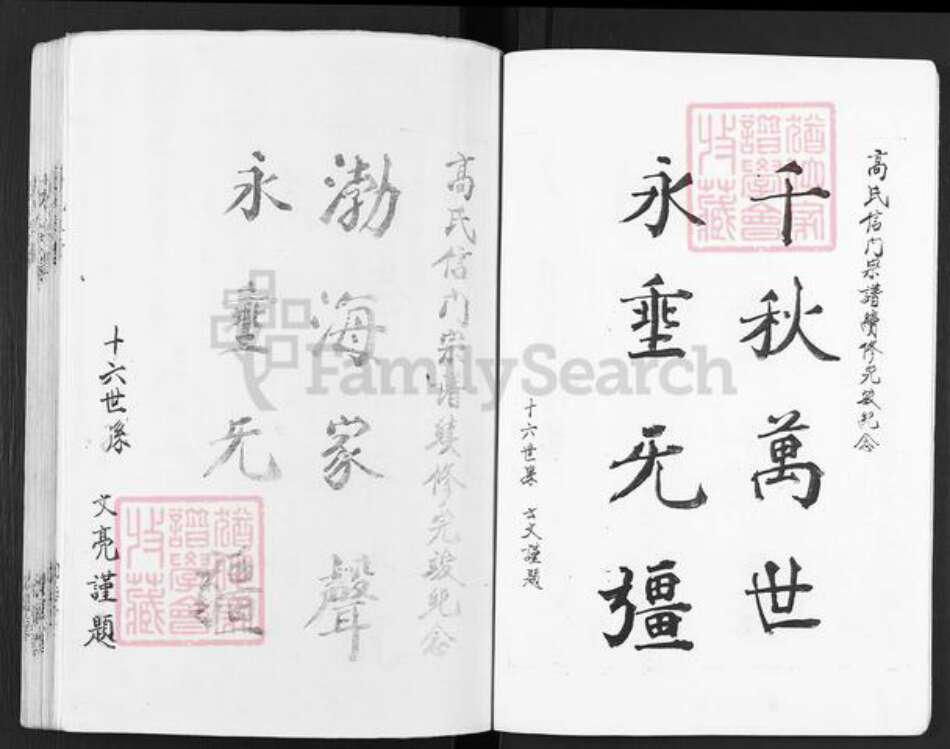 高氏信门宗譜續修完竣紀念
千秋萬世
永垂无疆
十六世孫 士文謹題
高氏信门宗譜续修完竣紀念
渤海家聲
永垂无疆
十六世孫
文亮謹題
譜學會收藏
FamilySearch